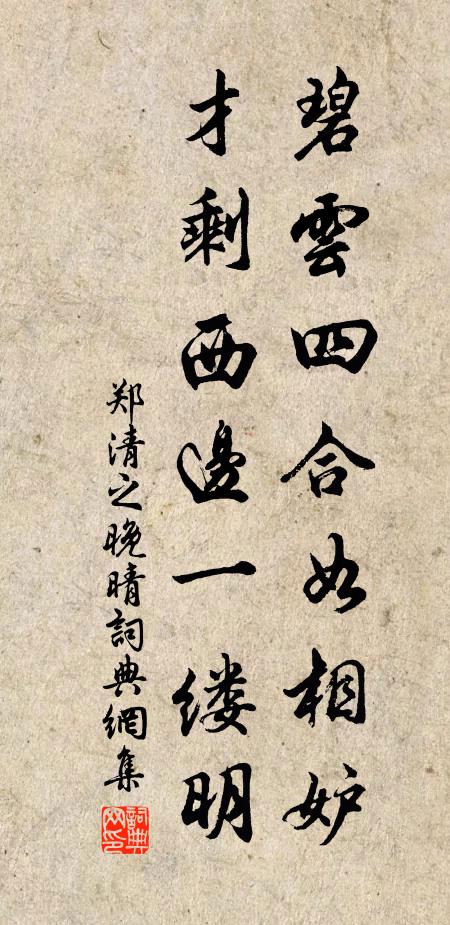 碧雲四合如相妒
才剩西邊一缕明
郑清之晚晴詞典網集
詞典網印